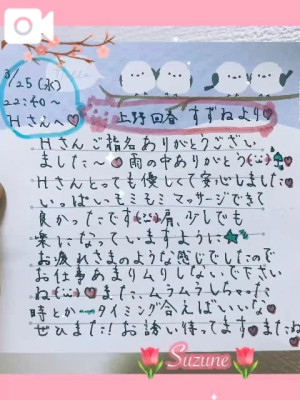 3/25(水)
22:40〜
Hさんへ♡
上野回春 すずねより♡
Hさんご指名ありがとうござい
ました〜♡雨の中ありがとう(;;)
Hさんとっても優しくて安心しました♡
いっぱいモミモミマッサージできて
良かったです(;;)肩、少しでも
楽になっていますように★
お疲れさまのような感じでしたので
お仕事あまりムリしないで下さい
ね(;;)♡また、ムラムラしちゃった
時とかータイミング合えばいいな♡
ぜひまた!お誘い待ってます♡またね
Suzune